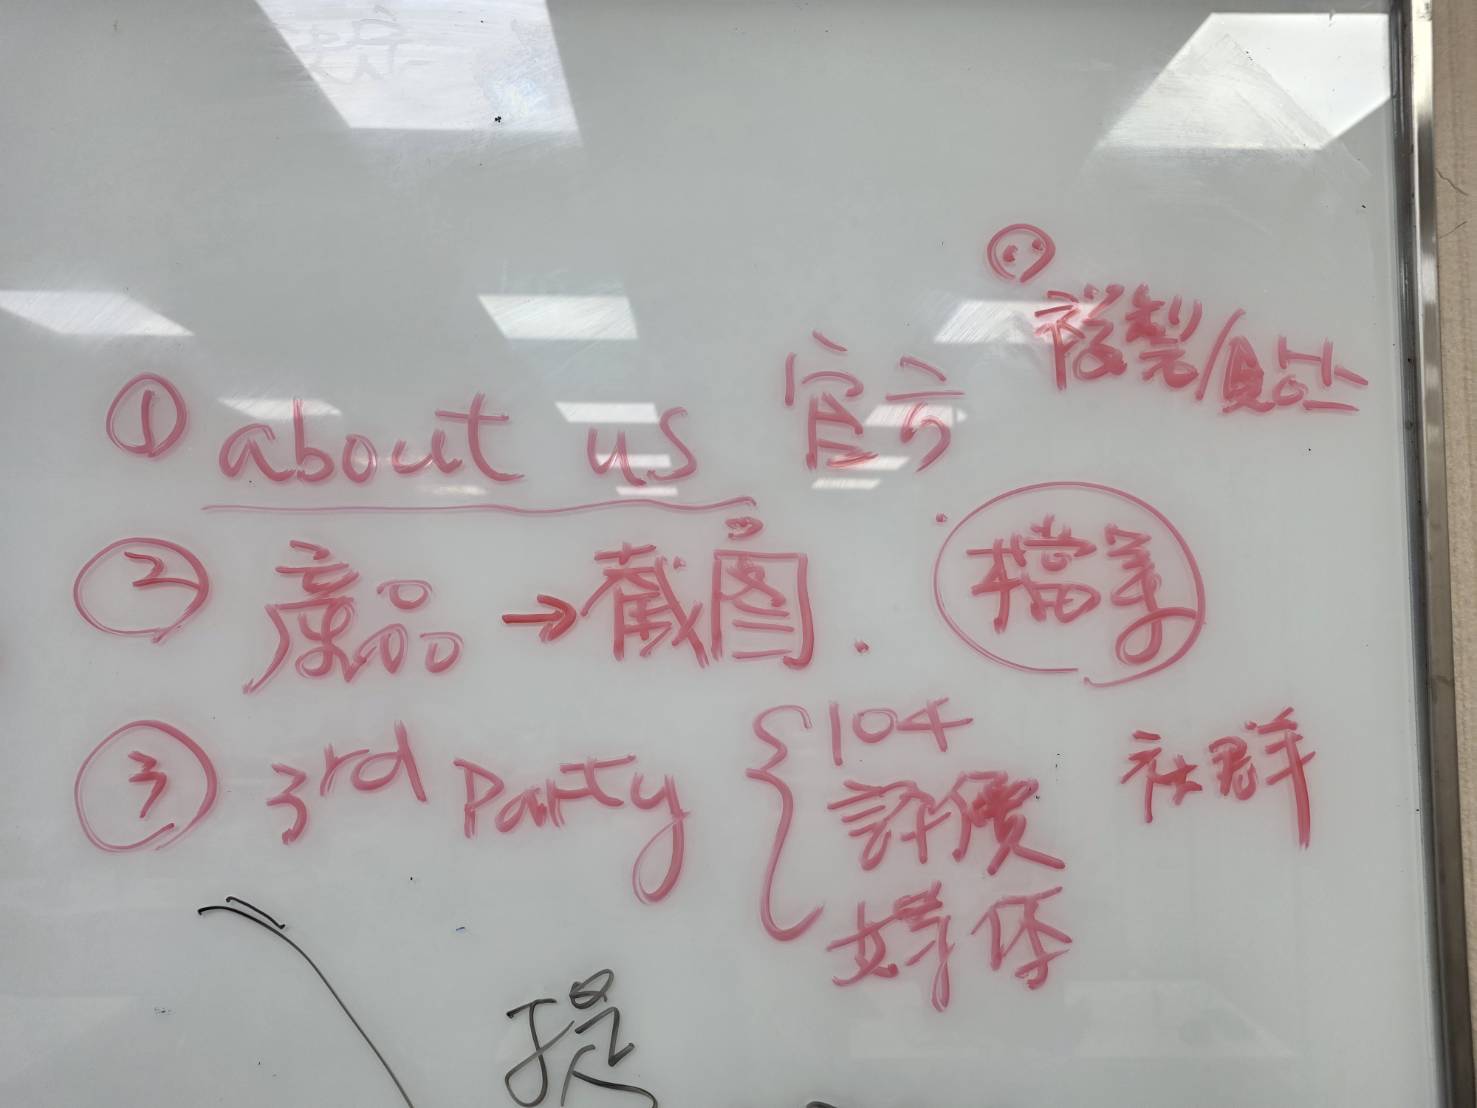 複製/貼上
① about us 官方
② 產品 → 截图. 檔案
③ 3rd Party { 104 社群
評價
媒体
提